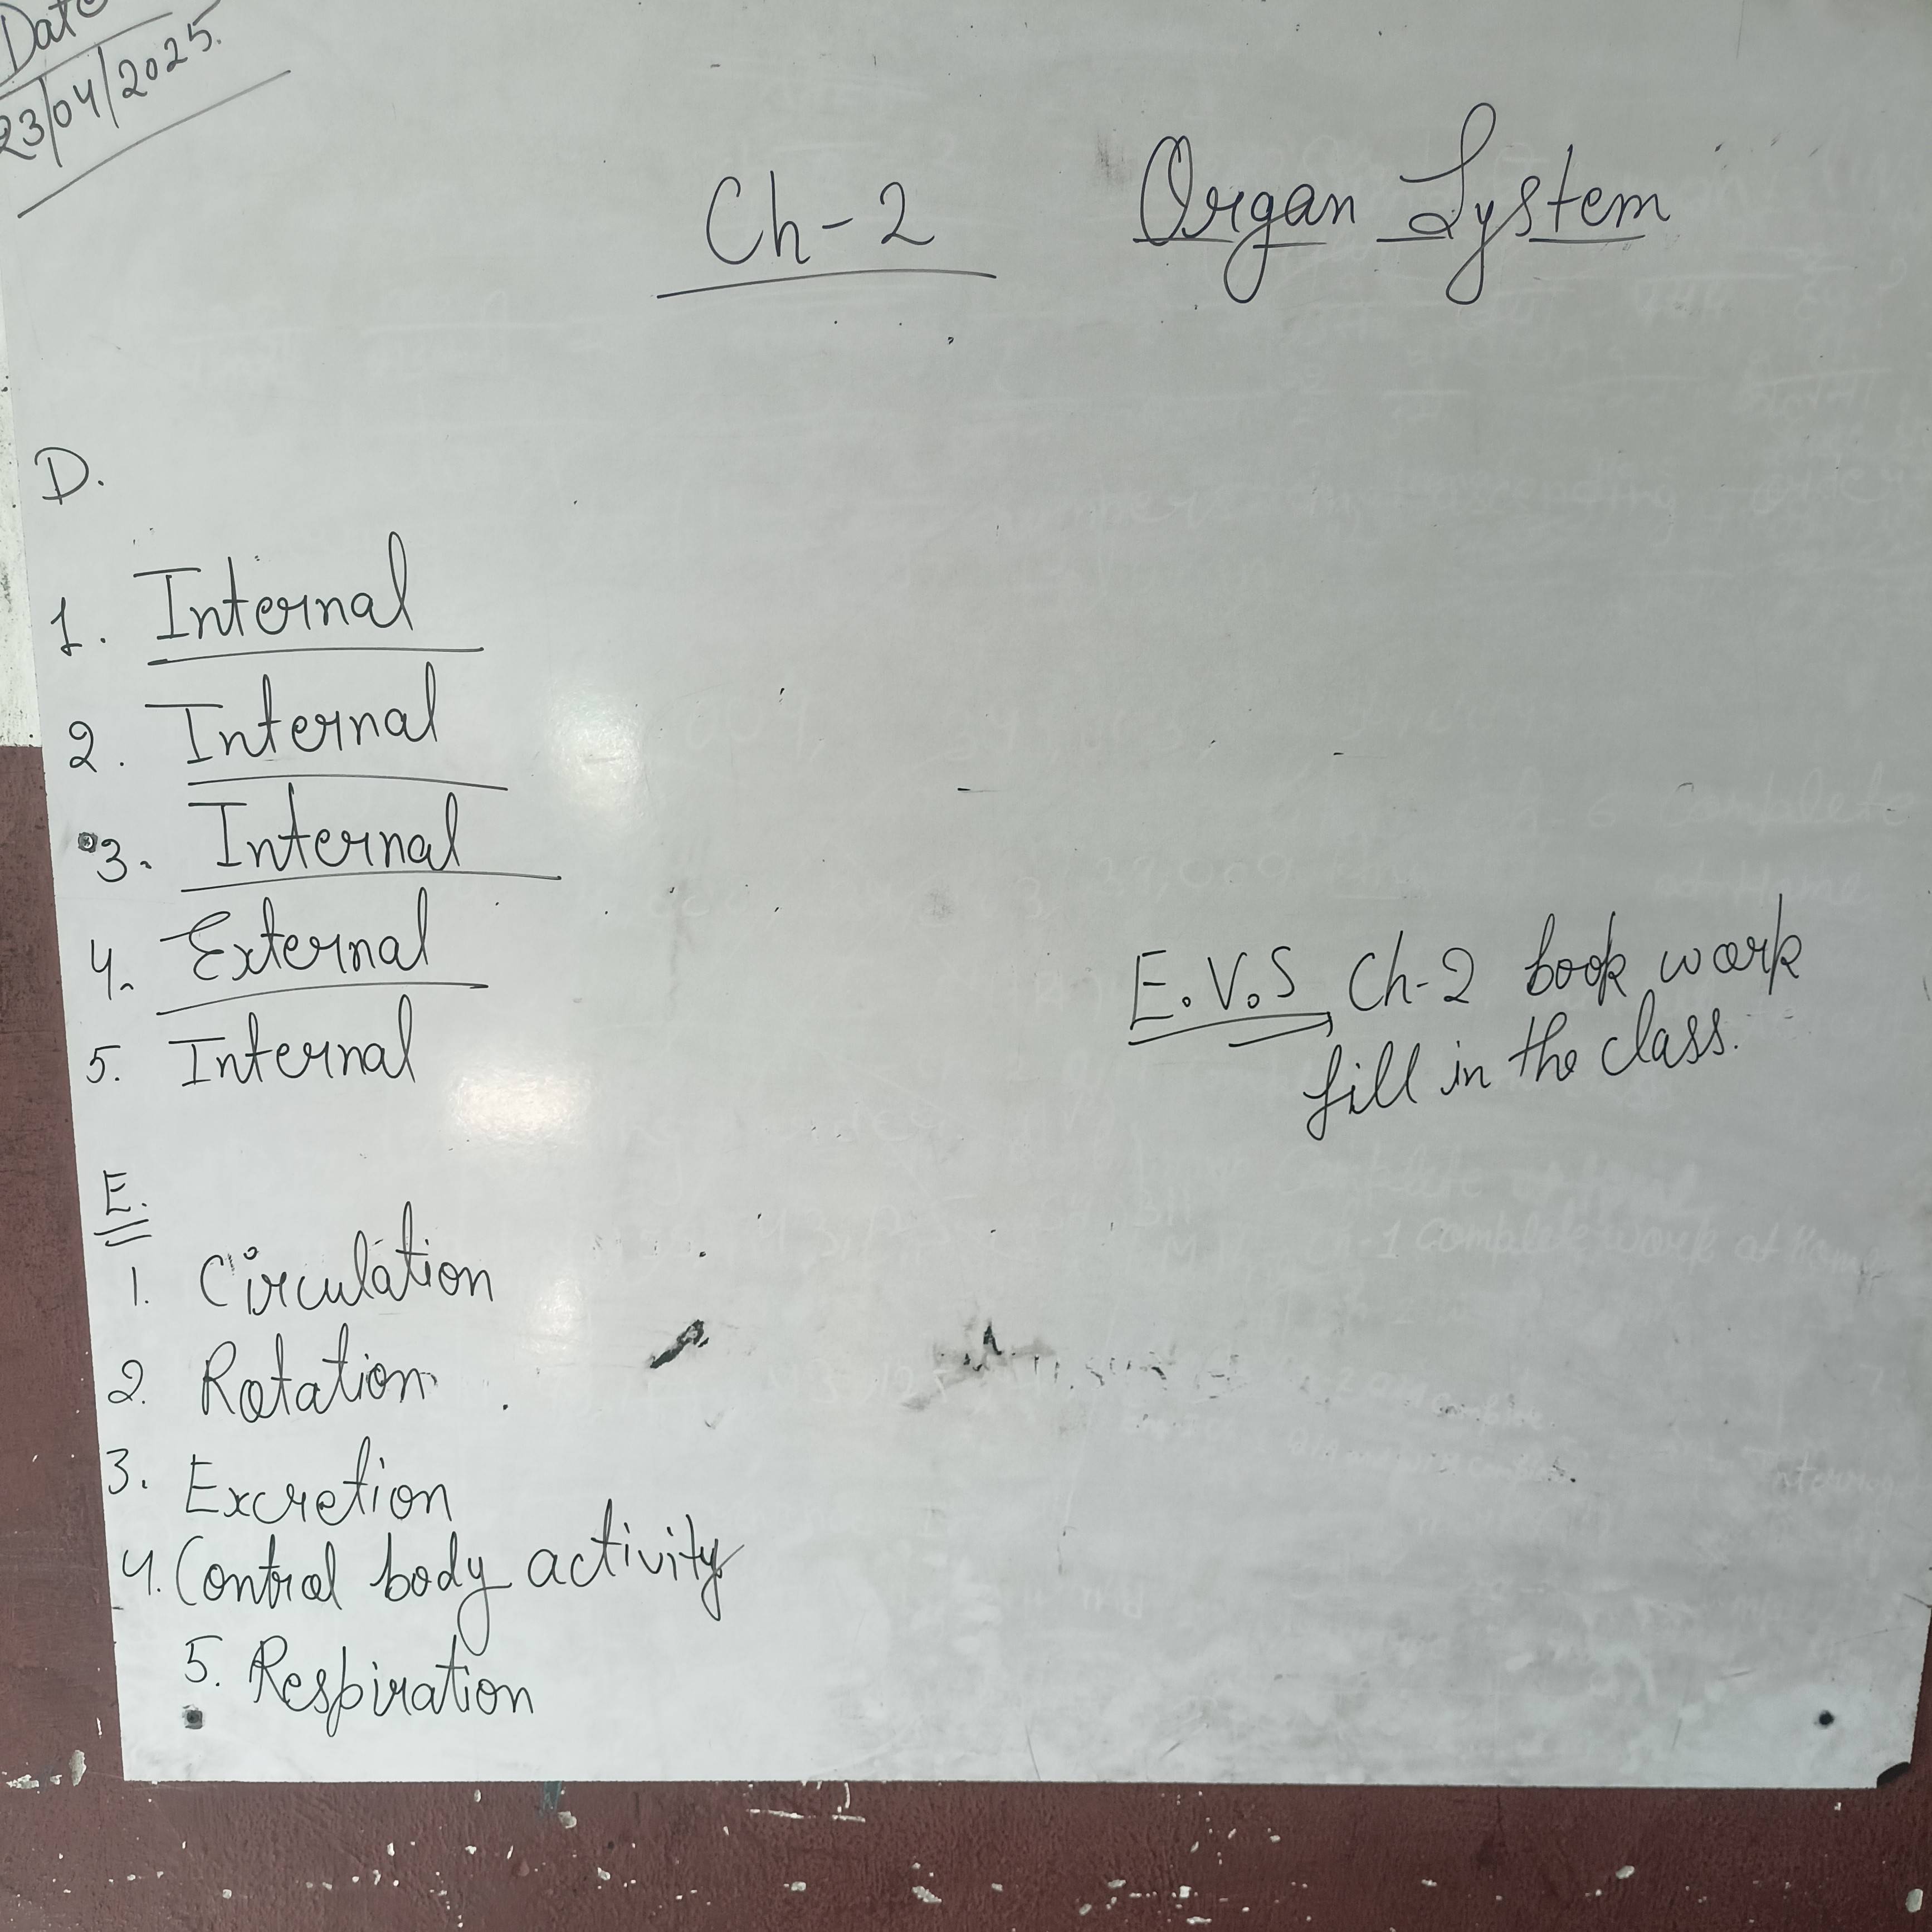 Date
23/04/2025.
Ch-2 Organ System
D.
1. Internal
2. Internal
3. Internal
4. External
5. Internal
E.V.S Ch-2 book work
fill in the class.
E.
1. Circulation
2. Rotation
3. Excretion
4. Control body activity
5. Respiration